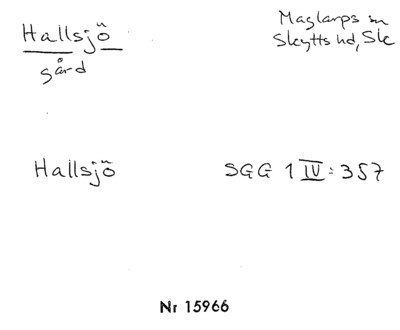 Hallsjö
gård
Maglarps sn
Skytts hd, Sk
Hallsjö
SGG 1 IV: 357
Nr 15966